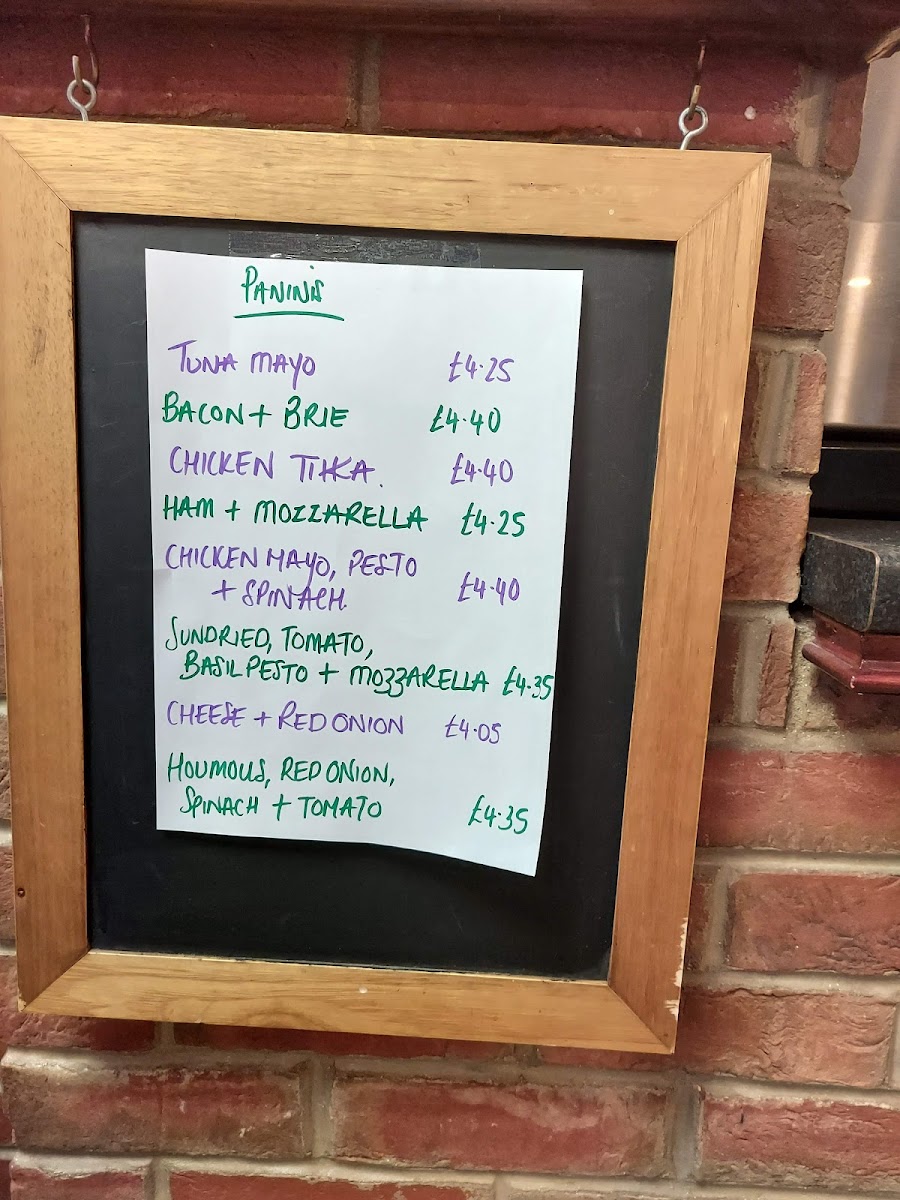 PANINIS
TUNA MAYO £4.25
BACON + BRIE £4.40
CHICKEN TIKKA. £4.40
HAM + MOZZARELLA £4.25
CHICKEN MAYO, PESTO
+ SPINACH. £4.40
SUNDRIED, TOMATO,
BASIL PESTO + MOZZARELLA £4.35
CHEESE + RED ONION £4.05
HOUMOUS, RED ONION,
SPINACH + TOMATO £4.35